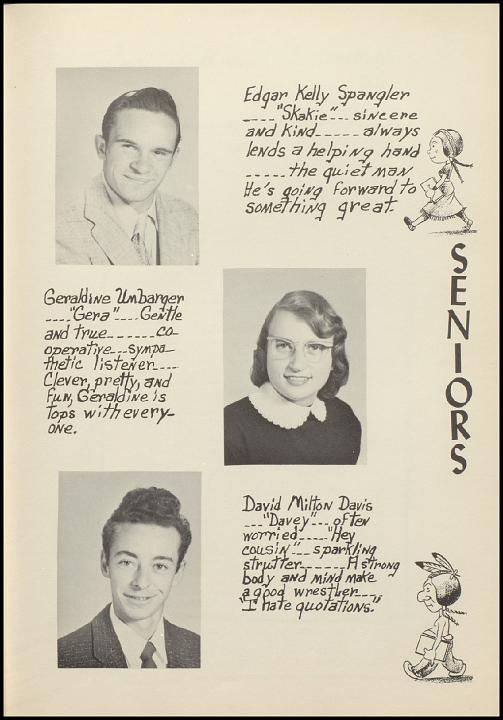 Edgar Kelly Spangler
____"Skakie"___sincere
and kind_____always
lends a helping hand
_____the quiet man
He's going forward to
something great.
SENIORS
Geraldine Umbarger
____"Gera"____Gentle
and true______co-
operative__sympa-
thetic listener____
Clever, pretty, and
fun, Geraldine is
tops with every-
one.
David Milton Davis
___"Davey"___often
worried____"Hey
cousin"__sparkling
strutter______A strong
body and mind make
a good wrestler___
"I hate quotations."